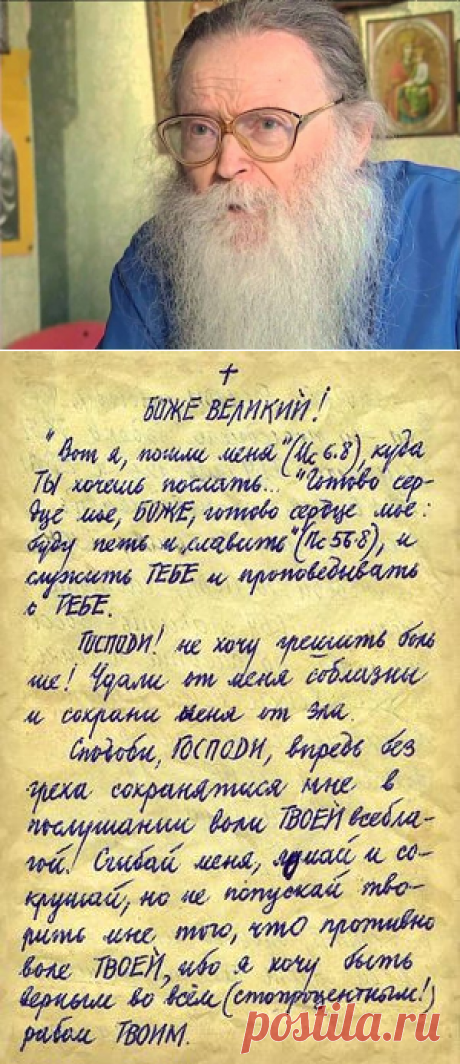 БОЖЕ ВЕЛИКИЙ!
"Вот я, пошли меня" (Ис 6.8), куда
ТЫ хочешь послать... "Готово сер-
дце мое, БОЖЕ, готово сердце мое:
буду петь и славить" (Пс 56.8), и
служить ТЕБЕ и проповедывать
о ТЕБЕ.
ГОСПОДИ! не хочу грешить боль
ше! Удали от меня соблазны
и сохрани меня от зла.
Сподоби, ГОСПОДИ, впредь без
греха сохранятися мне в
послушании воли ТВОЕЙ всебла-
гой! Сгибай меня, ломай и со-
крушай, но не попускай тво-
рить мне того, что противно
воле ТВОЕЙ, ибо я хочу быть
верным во всём (стопроцентным!)
рабом ТВОИМ.
postila.ru